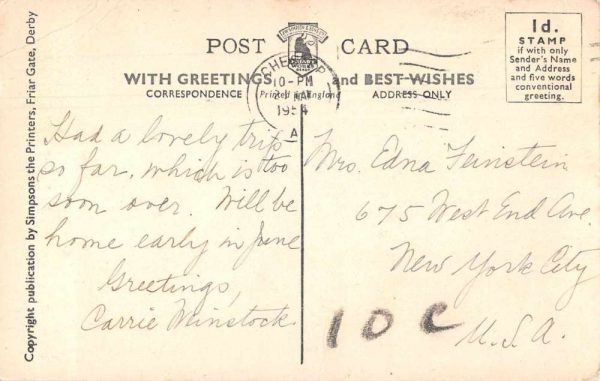 POST CARD
WITH GREETINGS and BEST WISHES
CORRESPONDENCE Printed in England ADDRESS ONLY
10-PM
1954
A
1d.
STAMP
if with only
Sender's Name
and Address
and five words
conventional
greeting.
Copyright publication by Simpsons the Printers, Friar Gate, Derby
Had a lovely trip
so far, which is too
soon over. Will be
home early in June
Greetings,
Carrie Minstock.
Mrs. Edna Feinstein
675 West End Ave.
New York City
U.S.A.
10c